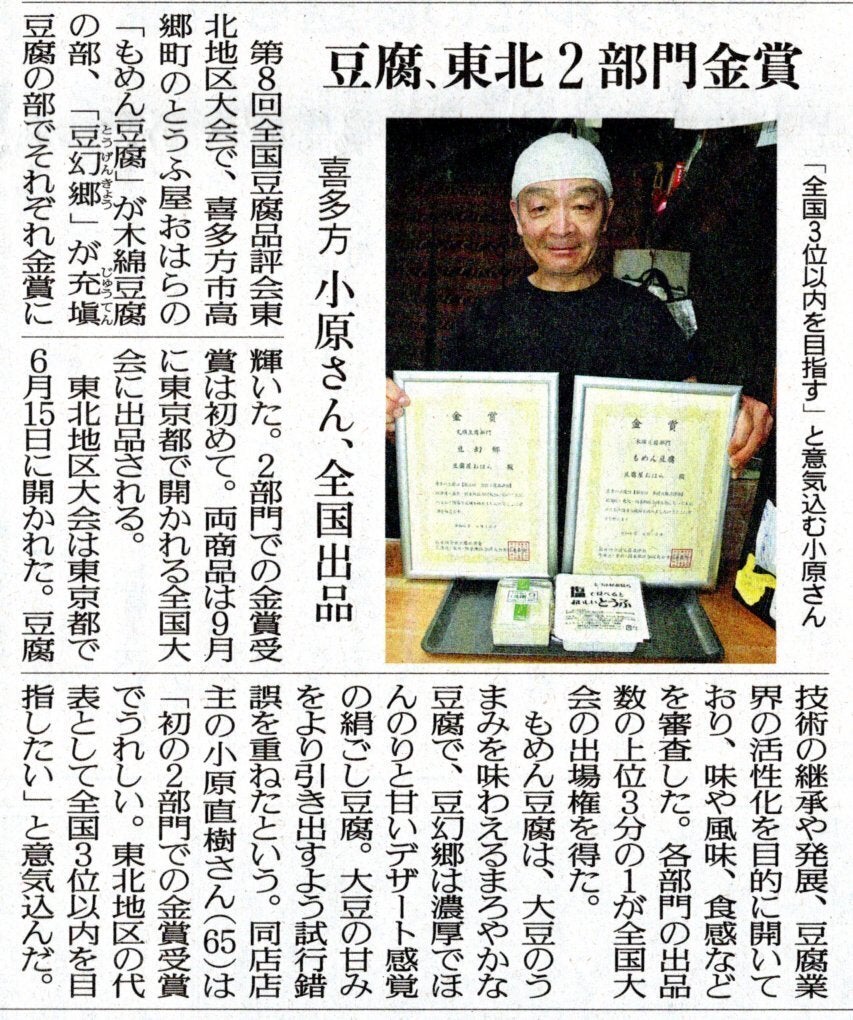 豆腐、東北2部門金賞
喜多方 小原さん、全国出品
「全国3位以内を目指す」と意気込む小原さん
第8回全国豆腐品評会東
北地区大会で、喜多方市高
郷町のとうふ屋おはらの
「もめん豆腐」が木綿豆腐
の部、「豆幻郷」が充塡
とうげんきょう
じゅうてん
豆腐の部でそれぞれ金賞に
輝いた。2部門での金賞受
賞は初めて。両商品は9月
に東京都で開かれる全国大
会に出品される。
東北地区大会は東京都で
6月15日に開かれた。豆腐
技術の継承や発展、豆腐業
界の活性化を目的に開いて
おり、味や風味、食感など
を審査した。各部門の出品
数の上位3分の1が全国大
会の出場権を得た。
もめん豆腐は、大豆のう
まみを味わえるまろやかな
豆腐で、豆幻郷は濃厚でほ
んのりと甘いデザート感覚
の絹ごし豆腐。大豆の甘み
をより引き出すよう試行錯
誤を重ねたという。同店店
主の小原直樹さん(65)は
「初の2部門での金賞受賞
でうれしい。東北地区の代
表として全国3位以内を目
指したい」と意気込んだ。
金賞
豆幻郷
豆腐屋おはら 殿
金賞
木綿豆腐部門
もめん豆腐
豆腐屋おはら 殿
塩で食べると
おいしいとうふ